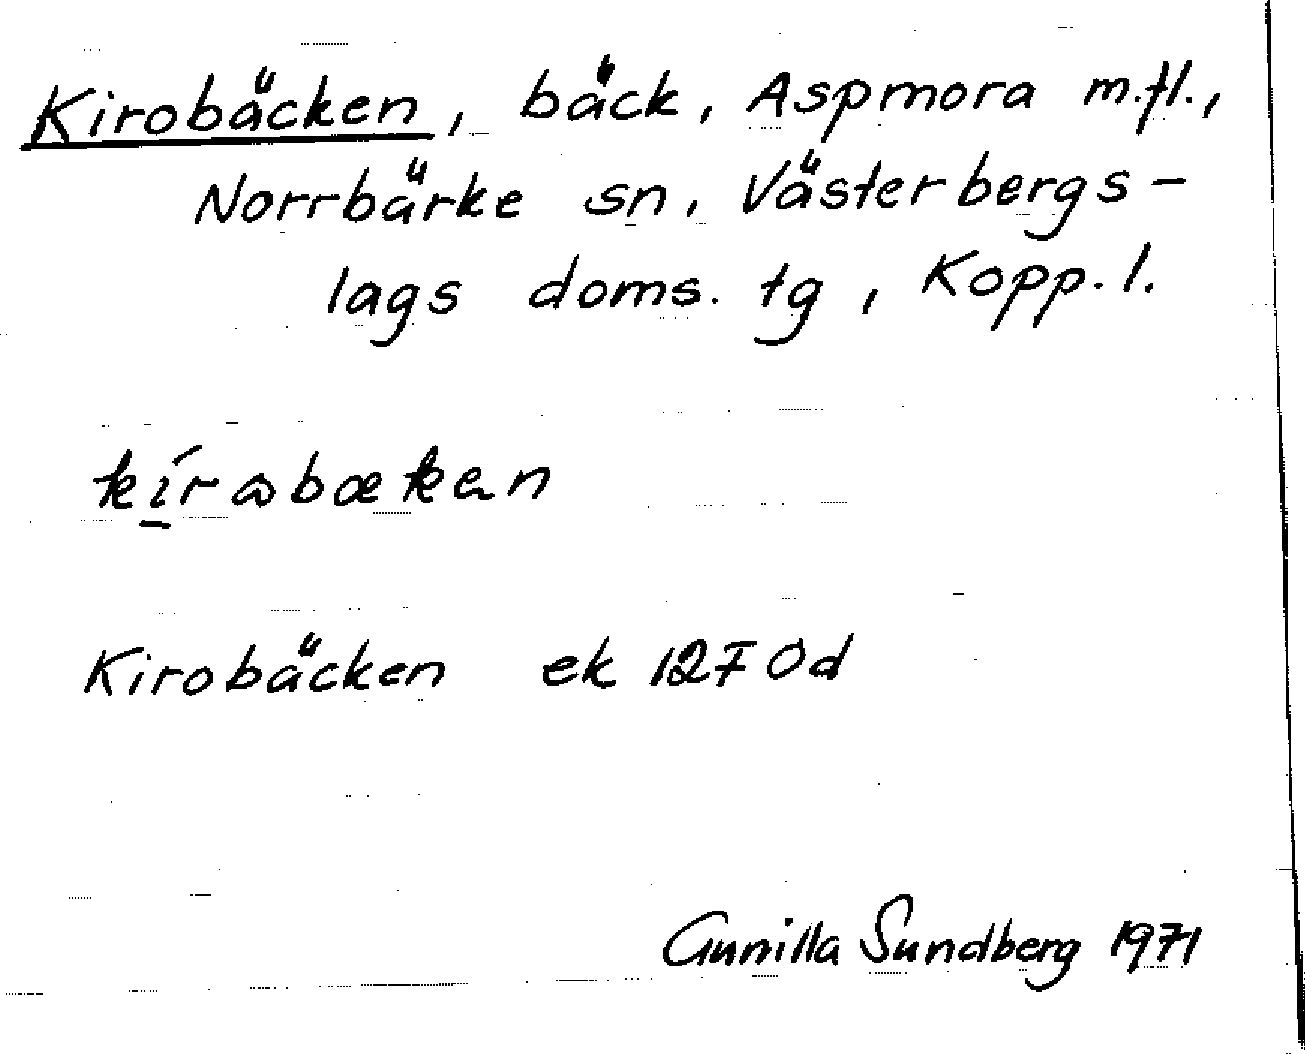 Kirobäcken, bäck, Aspmora m.fl.,
Norrbärke sn, Västerbergs-
lags doms. tg, Kopp. l.
Kirobäcken ek 12F 0d
Gunilla Sundberg 1971